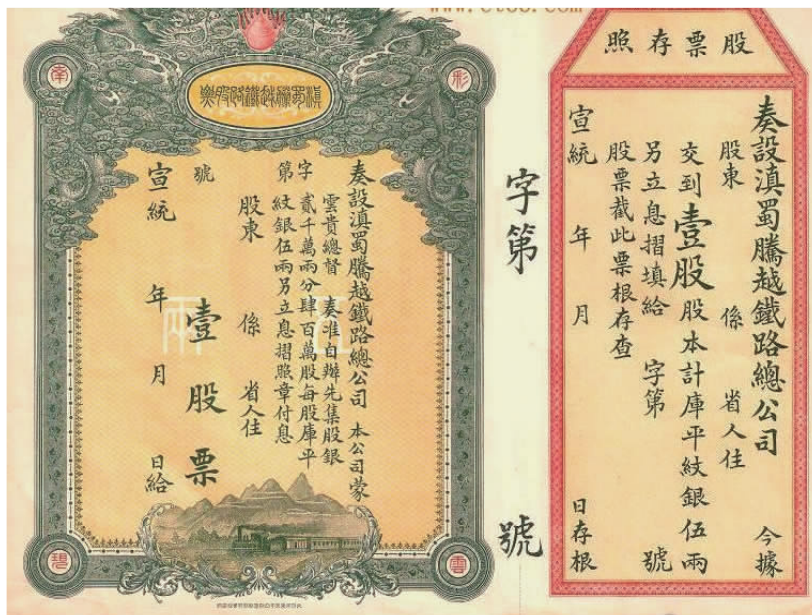 股票存照
奏設滇蜀騰越鐵路總公司 今據
股東 係 省人住
交到壹股股本計庫平紋銀伍兩
另立息摺填給 字第 號
股票截此票根存查
宣統 年 月 日存根
字第 號
滇蜀騰越鐵路股票
彩
南
雲
奏設滇蜀騰越鐵路總公司 本公司蒙
雲貴總督 奏准自辦先集股銀
貳千萬兩分肆百萬股每股庫平
紋銀伍兩另立息摺照章付息
字第 號
股東 係 省人住
壹股票
宣統 年 月 日給
兩